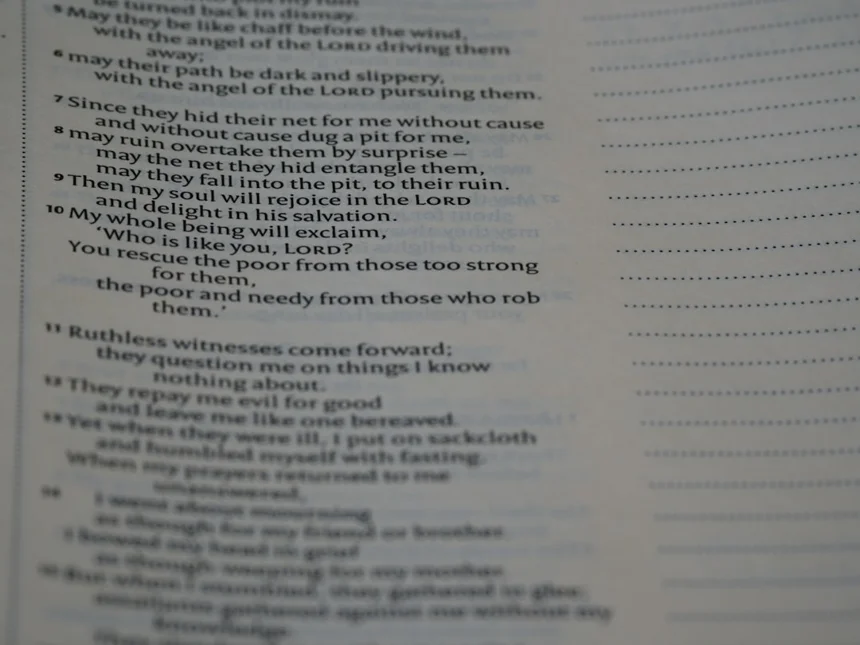 be turned back in dismay.
5 May they be like chaff before the wind,
with the angel of the LORD driving them
away;
6 may their path be dark and slippery,
with the angel of the LORD pursuing them.
7 Since they hid their net for me without cause
and without cause dug a pit for me,
8 may ruin overtake them by surprise –
may the net they hid entangle them,
may they fall into the pit, to their ruin.
9 Then my soul will rejoice in the LORD
and delight in his salvation.
10 My whole being will exclaim,
‘Who is like you, LORD?
You rescue the poor from those too strong
for them,
the poor and needy from those who rob
them.’
11 Ruthless witnesses come forward;
they question me on things I know
nothing about.
12 They repay me evil for good
and leave me like one bereaved.
13 Yet when they were ill, I put on sackcloth
and humbled myself with fasting.
When my prayers returned to me
unanswered,
14 I went about mourning
as though for my friend or brother.
I bowed my head in grief
as though weeping for my mother.
15 But when I stumbled, they gathered in glee;
gathered against me without my
knowledge.